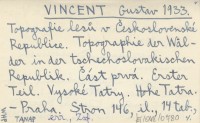 VINCENT Gustav 1933.
Topografie lesů v Československé
Republice. Topographie der Wäl-
der in der tschechoslovakischen
Republik. Část prvá. Erster
Teil. Vysoké Tatry. Hohe Tatra.
Praha. Stron 146, il., 14 tab,
TANAP err., 2